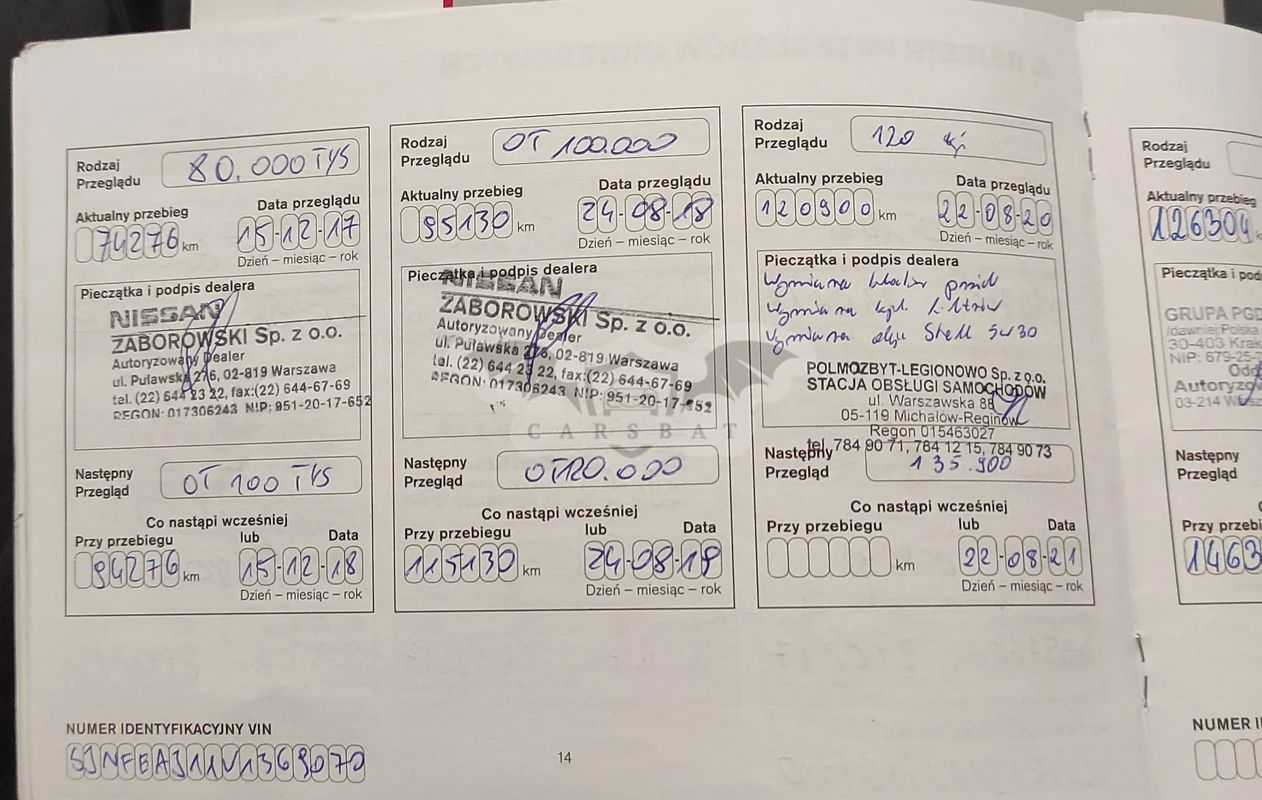 Rodzaj
Przeglądu
80.000 TYS
Aktualny przebieg
74276 km
Data przeglądu
15-12-17
Dzień – miesiąc – rok
Pieczątka i podpis dealera
NISSAN
ZABOROWSKI Sp. z o.o.
Autoryzowany Dealer
ul. Puławska 276, 02-819 Warszawa
tel. (22) 644 23 22, fax:(22) 644-67-69
REGON: 017306243 NIP: 951-20-17-652
Następny
Przegląd
OT 100 TYS
Co nastąpi wcześniej
Przy przebiegu lub Data
94276 km
15-12-18
Dzień – miesiąc – rok
Rodzaj
Przeglądu
OT 100.000
Aktualny przebieg
95130 km
Data przeglądu
24-08-18
Dzień – miesiąc – rok
Pieczątka i podpis dealera
NISSAN
ZABOROWSKI Sp. z o.o.
Autoryzowany Dealer
ul. Puławska 276, 02-819 Warszawa
tel. (22) 644 23 22, fax:(22) 644-67-69
REGON: 017306243 NIP: 951-20-17-652
CARSBAT
Następny
Przegląd
OT120.000
Co nastąpi wcześniej
Przy przebiegu lub Data
115130 km
24-08-19
Dzień – miesiąc – rok
Rodzaj
Przeglądu
120
Aktualny przebieg
120900 km
Data przeglądu
22-08-20
Dzień – miesiąc – rok
Pieczątka i podpis dealera
Wymiana klocków przód
Wymiana kpl. filtrów
Wymiana oleju Shell 5w30
POLMOZBYT-LEGIONOWO Sp. z o.o.
STACJA OBSŁUGI SAMOCHODÓW
ul. Warszawska 88
05-119 Michałów-Reginów
Regon 015463027
tel. 784 90 71, 784 12 15, 784 90 73
Następny
Przegląd
135.900
Co nastąpi wcześniej
Przy przebiegu lub Data
km
22-08-21
Dzień – miesiąc – rok
Rodzaj
Przeglądu
Aktualny przebieg
126304
Pieczątka i pod
GRUPA PGD
/dawniej Polska
30-403 Krak
NIP: 679-25-
Odd
Autoryzo
03-214
Następny
Przegląd
Przy przebi
1463
NUMER IDENTYFIKACYJNY VIN
SJNFEAJ11U1369070
14
NUMER I